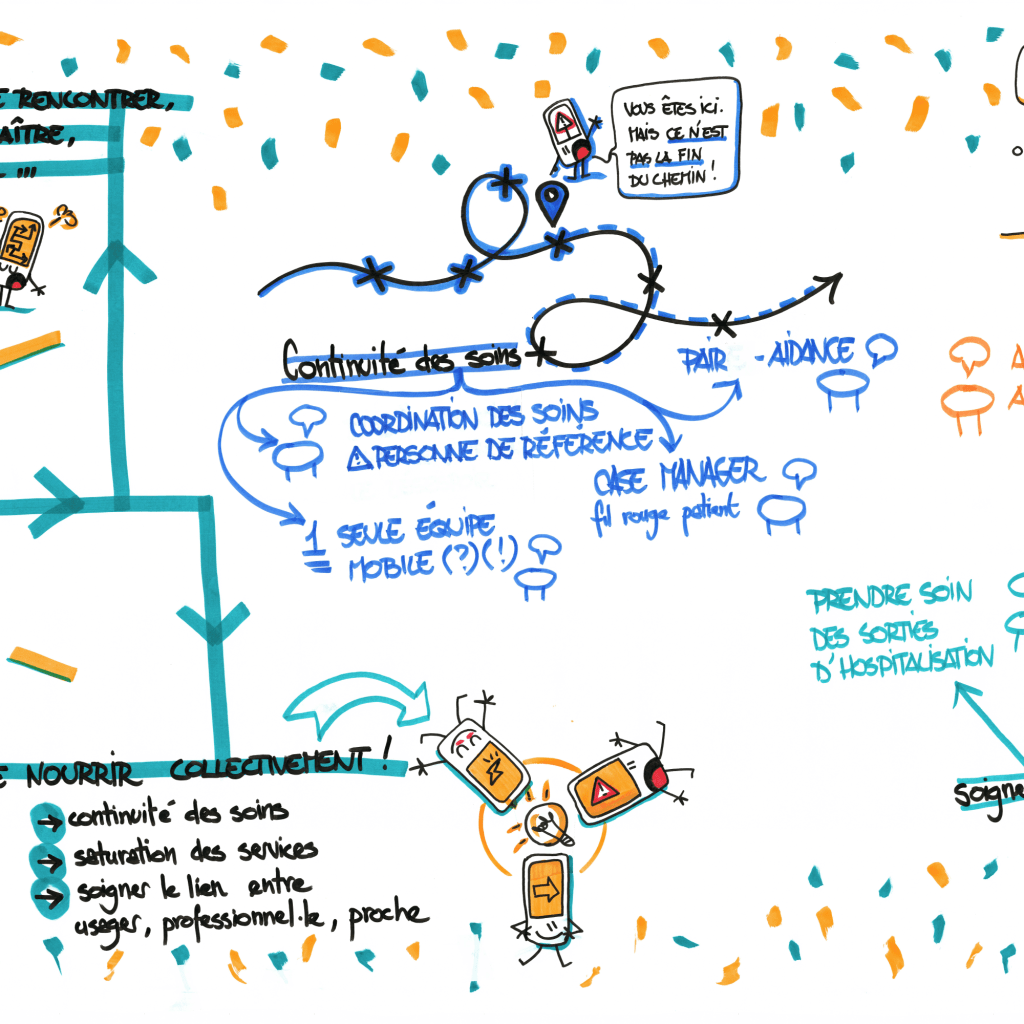 E RENCONTRER,
AÎTRE,
!!!
VOUS ÊTES ICI.
MAIS CE N'EST
PAS LA FIN
DU CHEMIN !
Continuité des soins
PAIR - AIDANCE
COORDINATION DES SOINS
⚠ PERSONNE DE RÉFÉRENCE
CASE MANAGER
fil rouge patient
1 SEULE ÉQUIPE
MOBILE (?)(!)
A
A
PRENDRE SOIN
DES SORTIES
D'HOSPITALISATION
soigne
E NOURRIR COLLECTIVEMENT !
→ continuité des soins
→ saturation des services
→ soigner le lien entre
usager, professionnel·le, proche